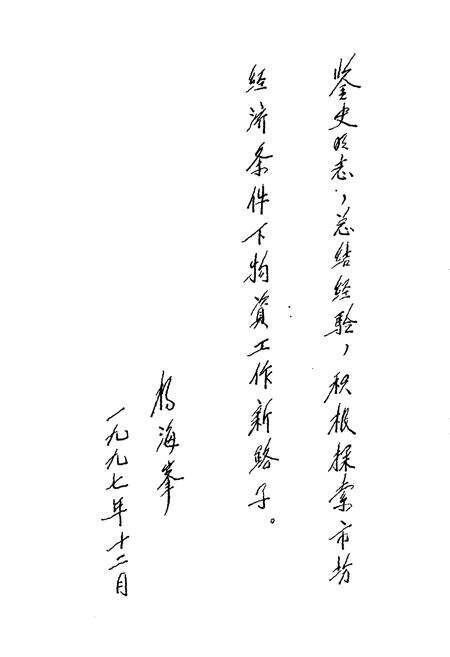 鉴史明志，总结经验，积极探索市场
经济条件下物资工作新路子。
杨海峰
一九九七年十二月